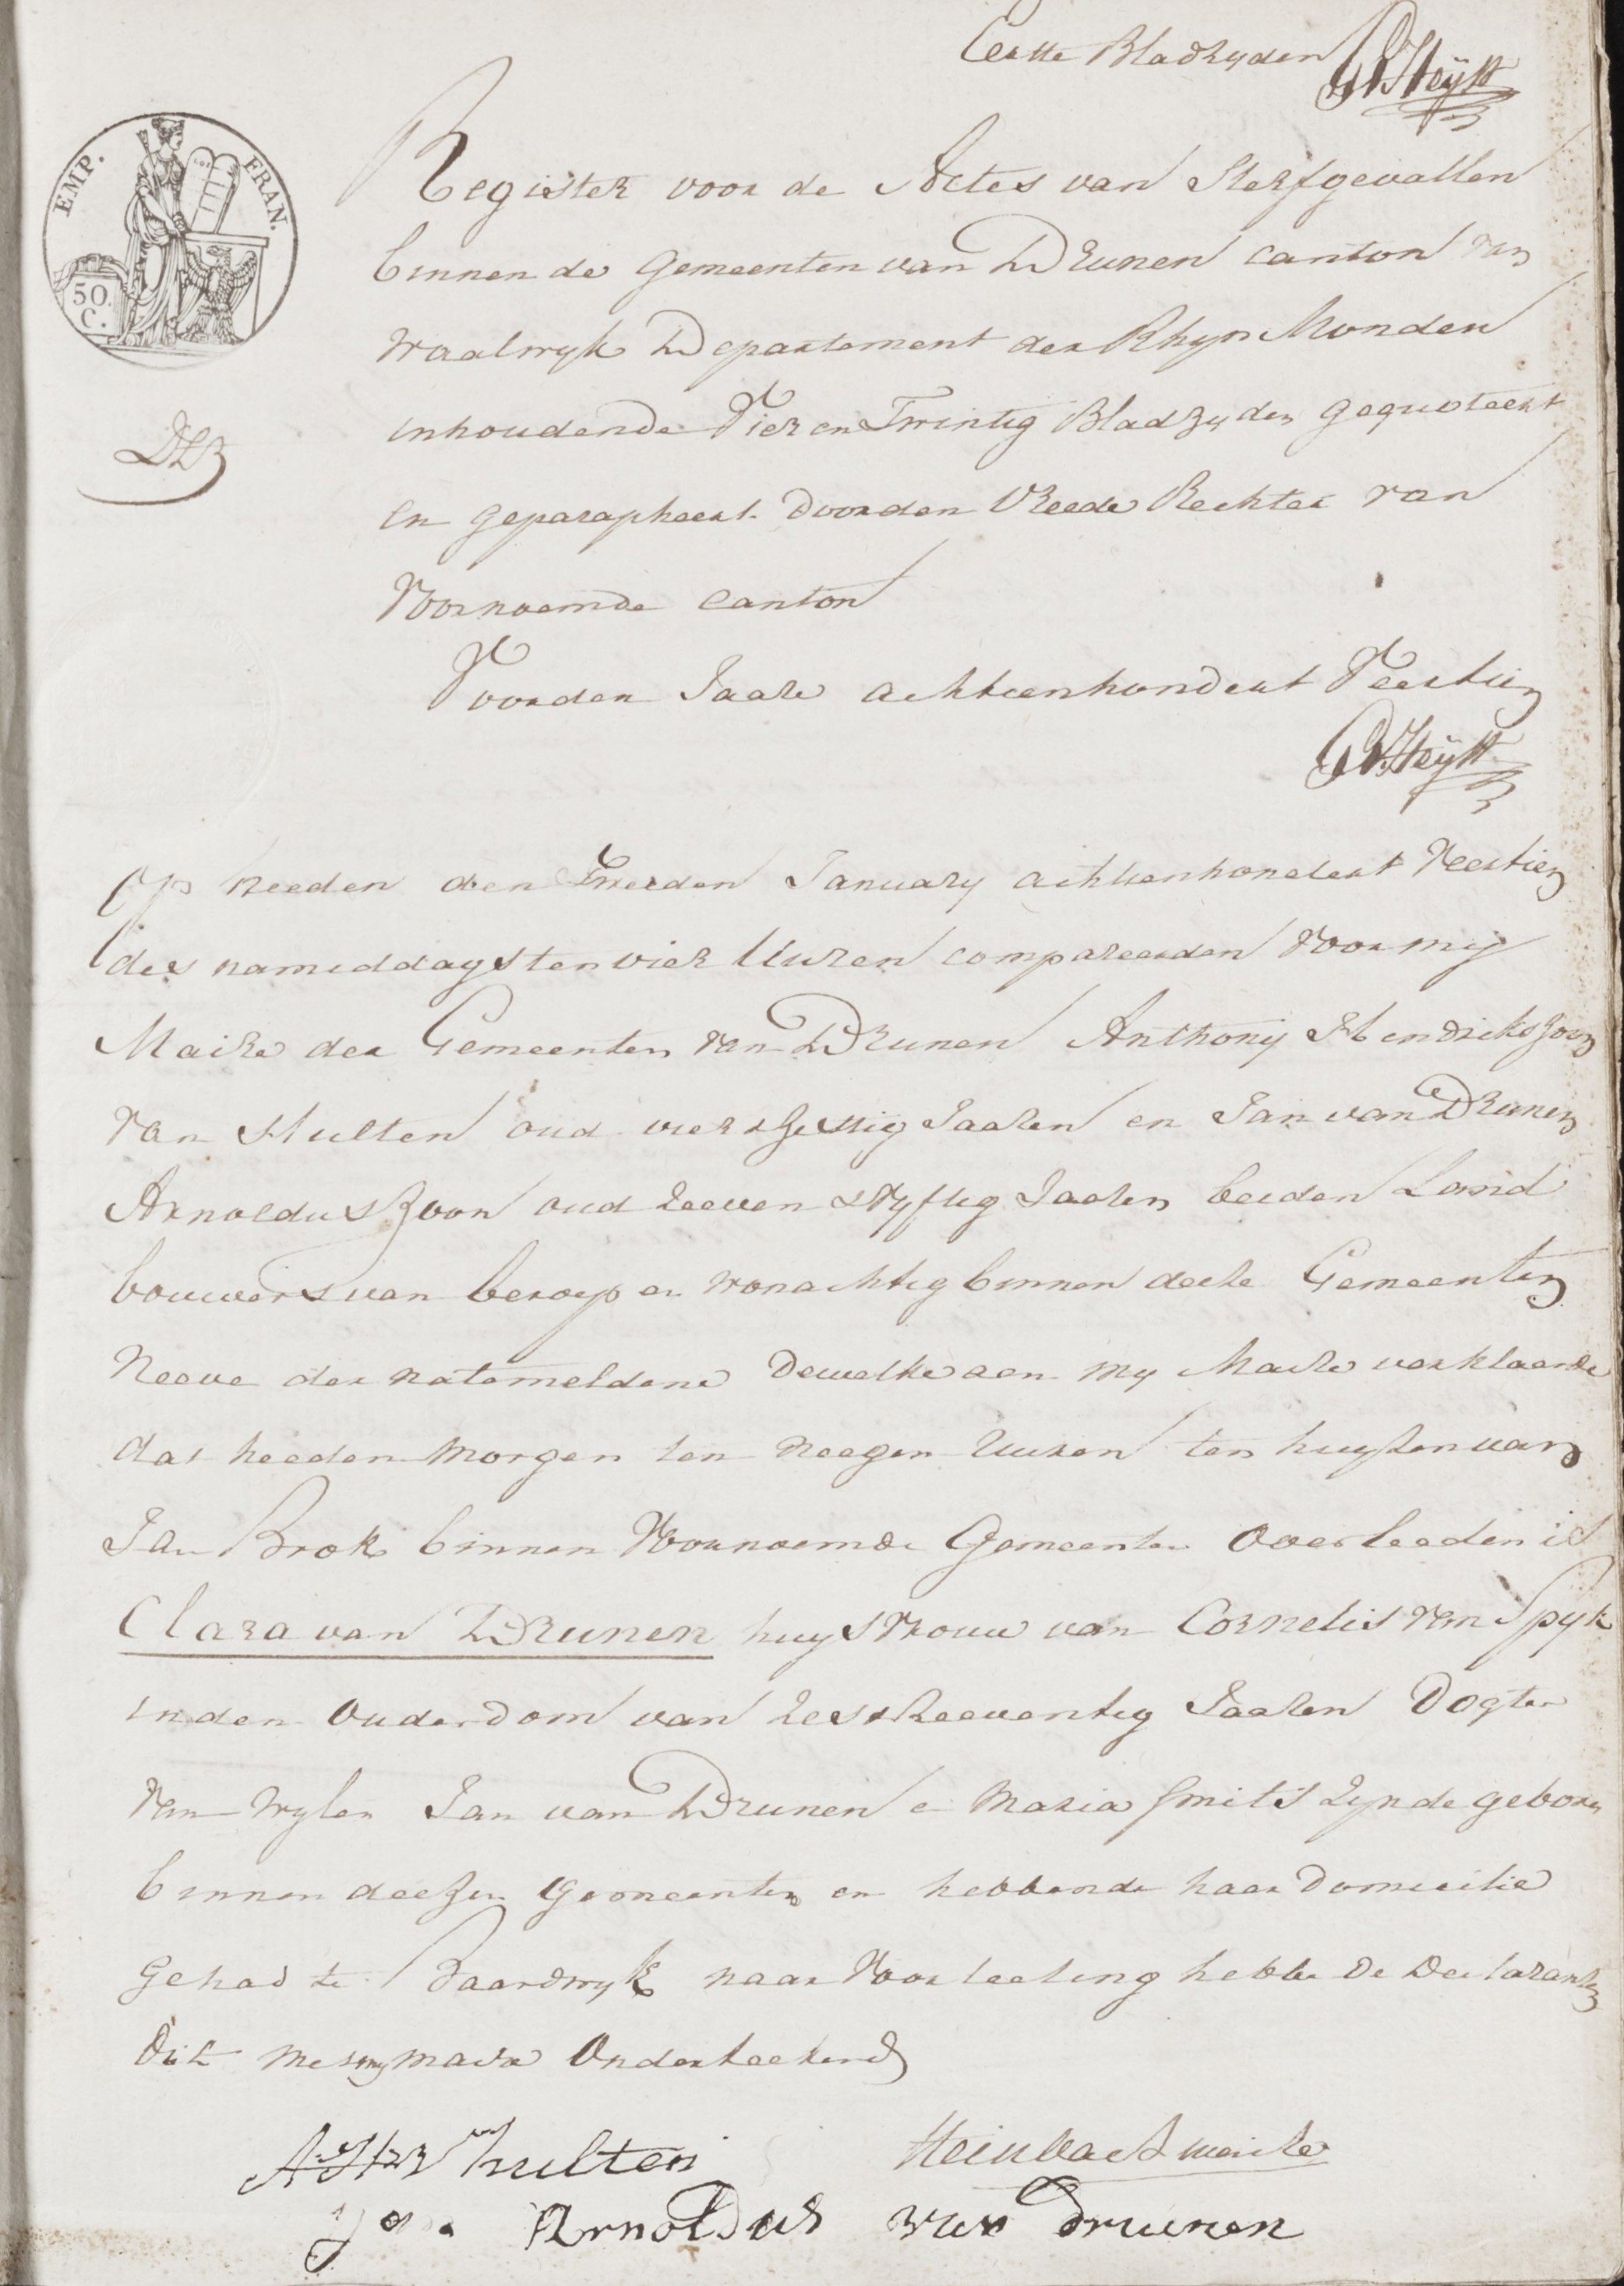 Eerste Bladzyden PVHeÿst
EMP. FRAN.
50. C.
Register voor de Actes van Sterfgevallen
binnen de gemeenten van Drunen canton van
Waalwyk Departement der Rhyn Monden
inhoudende Vier en Twintig Bladzyden gequoteert
en geparapheert door den Vreede Rechter van
Voornoemde canton
Voor den Jaare achtienhondert Veertien
PVHeÿst
Op heeden den Tweeden January achtienhondert Veertien
des namiddags ten vier Uuren compareerden voor mij
Maire der Gemeenten van Drunen Anthonij Hendrikszoon
van Hulten oud vier & zestig Jaaren en Jan van Drunen
Arnoldus Zoon oud zeeven & Vyftig Jaaren beiden Land
bouwers van beroep en wonachtig binnen deeze Gemeenten
Neeve der natemeldene Dewelke aen my Maire verklaarde
dat heeden morgen ten neegen Uuren ten huyzen van
Jan Brok binnen Voornoemde Gemeenten Overleeden is
Clara van Drunen huysvrouw van Cornelis van Spyk
in den Ouderdom van zes & zeeventig Jaaren Dogter
van Wylen Jan van Drunen e Maria Smits zynde geboren
binnen deezen Gemeenten en hebbende haar Domicilie
gehad te Baardwyk naar Voorleezing hebbe de Declaranten
Dit met my maire Onderteekend
van hulten
Heinbach maire
Arnoldus van Drunen